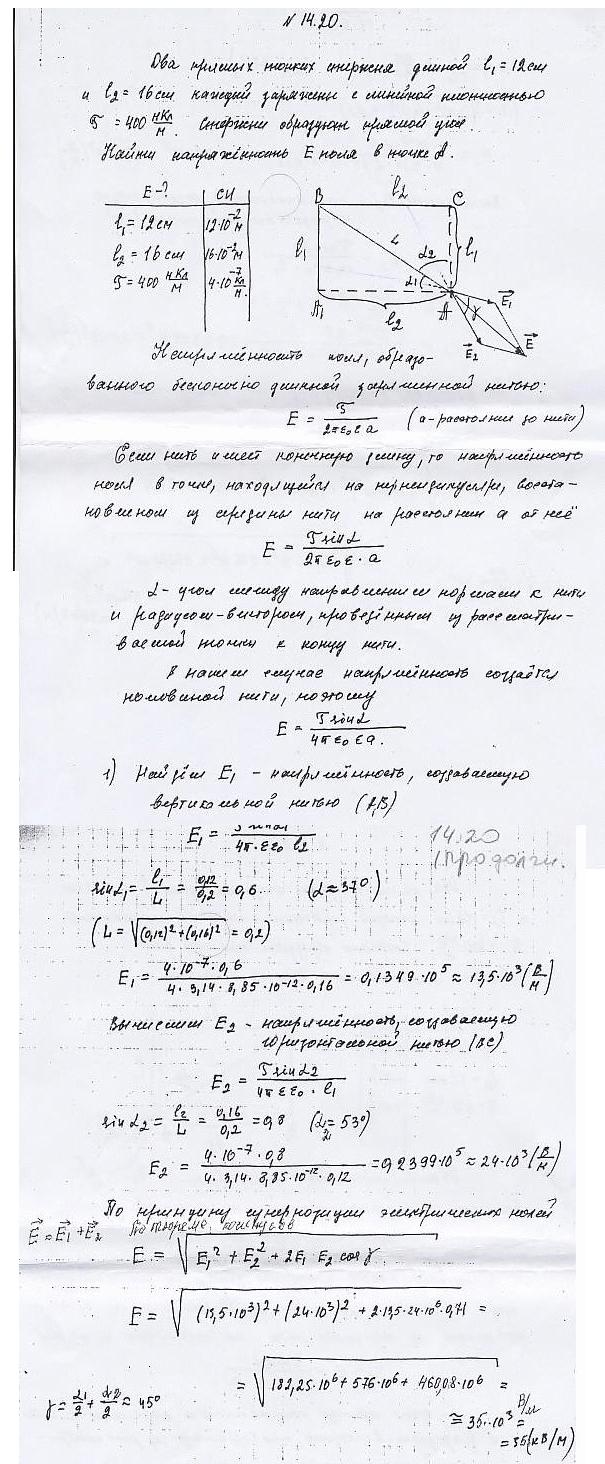 № 14.20.
Два прямых тонких стержня длиной l₁ = 12 см
и l₂ = 16 см каждый заряжены с линейной плотностью
τ = 400 нКл/м. Стержни образуют прямой угол.
Найти напряжённость E поля в точке A.
E - ? СИ
l₁ = 12 см 12·10⁻² м
l₂ = 16 см 16·10⁻² м
τ = 400 нКл/м 4·10⁻⁷ Кл/м.
B l₂ C
l₁ L α₂ l₁
α₁
A₁ l₂ A γ E⃗₁
E⃗₂ E⃗
Напряжённость поля, образо-
ванного бесконечно длинной заряженной нитью:
E = τ/(2πε₀ε a) (a - расстояние до нити)
Если нить имеет конечную длину, то напряжённость
поля в точке, находящейся на перпендикуляре, восста-
новленном из середины нити на расстоянии a от неё
E = τ sin α/(2πε₀ε·a)
α - угол между направлением нормали к нити
и радиусом-вектором, проведённым из рассматри-
ваемой точки к концу нити.
В нашем случае напряжённость создаётся
половиной нити, поэтому
E = τ sin α/(4πε₀εa.)
1) Найдём E₁ - напряжённость, создаваемую
вертикальной нитью (A₁B)
14.20
(продолж.
E₁ = /(4π·εε₀ l₂)
sin α₁ = l₁/L = 0,12/0,2 = 0,6 (α ≈ 37°)
(L = √((0,12)² + (0,16)²) = 0,2)
E₁ = 4·10⁻⁷·0,6/(4·3,14·8,85·10⁻¹²·0,16) = 0,1349·10⁵ ≈ 13,5·10³ (В/м)
Вычислим E₂ - напряжённость, создаваемую
горизонтальной нитью (BC)
E₂ = τ sin α₂/(4πεε₀·l₁)
sin α₂ = l₂/L = 0,16/0,2 = 0,8 (α₂ = 53°)
E₂ = 4·10⁻⁷·0,8/(4·3,14·8,85·10⁻¹²·0,12) = 0,2399·10⁵ ≈ 24·10³ (В/м)
По принципу суперпозиции электрических полей
E⃗ = E⃗₁ + E⃗₂ По теореме косинусов
E = √(E₁² + E₂² + 2E₁·E₂ cos γ)
E = √((13,5·10³)² + (24·10³)² + 2·13,5·24·10⁶·0,71) =
= √(182,25·10⁶ + 576·10⁶ + 460,08·10⁶) =
γ = α₁/2 + α₂/2 ≈ 45°
≅ 35·10³ В/м =
= 35 (кВ/м)